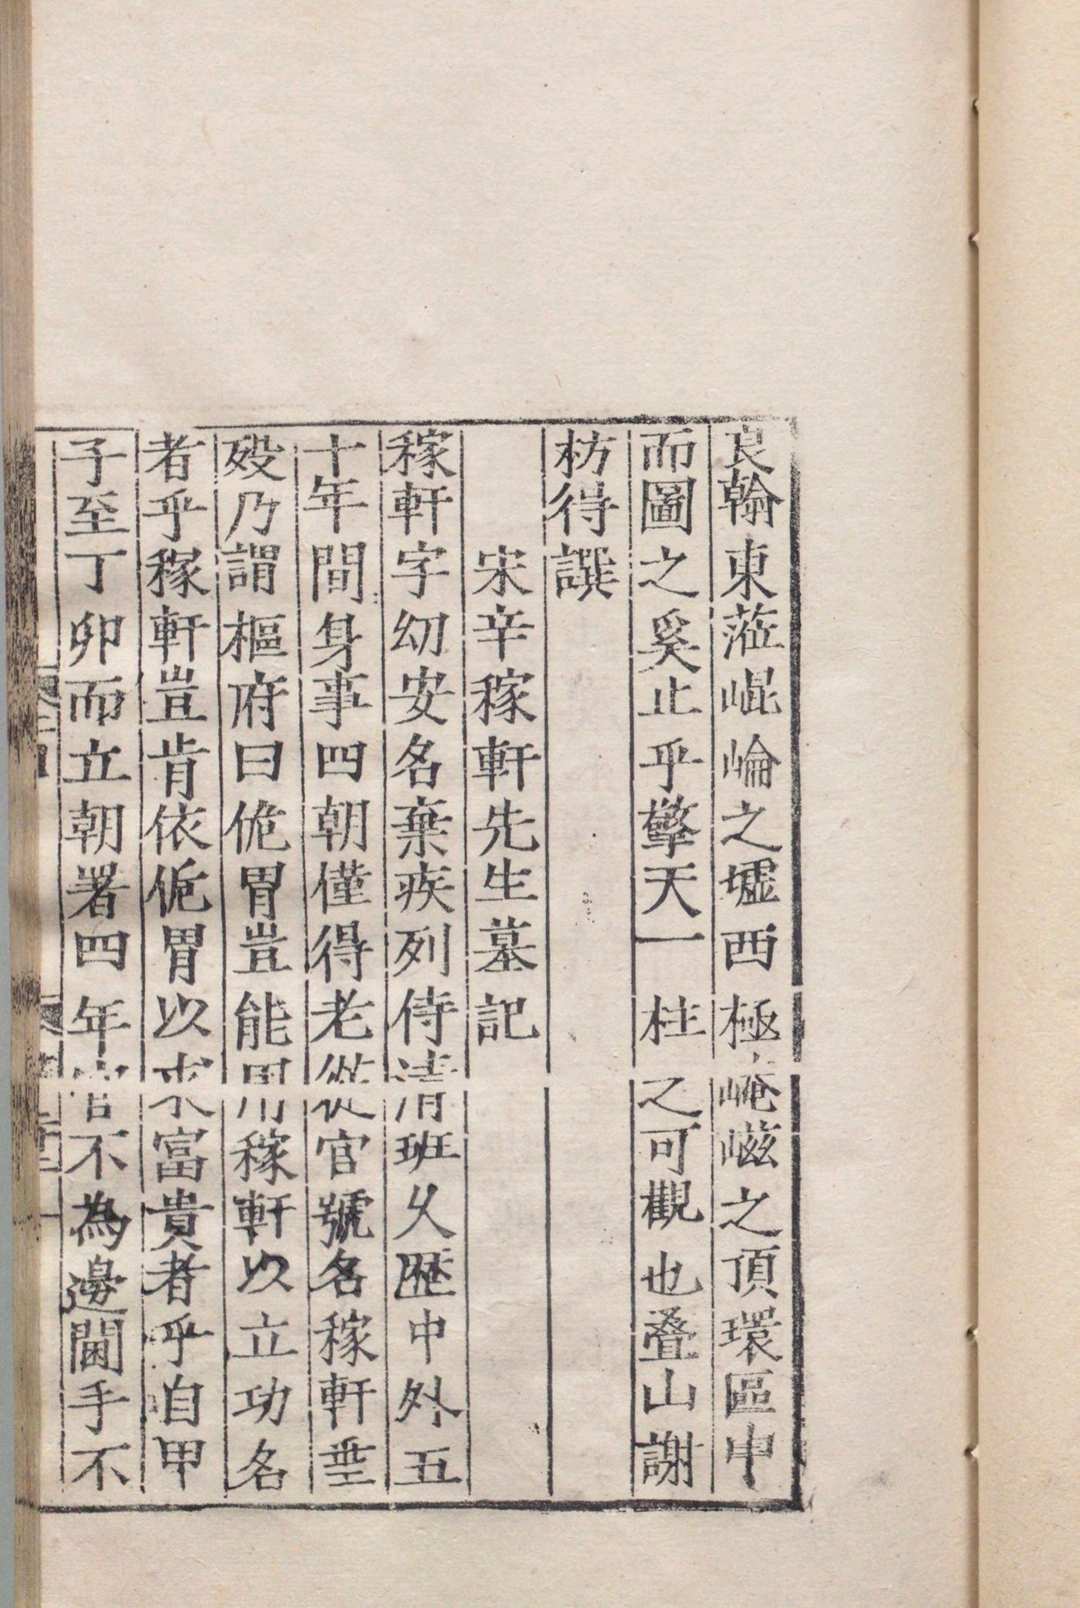 良翰東蒞崐崘之墟西極崦嵫之頂環區中
而圖之奚止乎擎天一柱之可觀也叠山謝
枋得譔
宋辛稼軒先生墓記
稼軒字幼安名棄疾列侍清班乆歴中外五
十年間身事四朝僅得老從官號名稼軒垂
歿乃謂樞府曰侂胄豈能用稼軒以立功名
者乎稼軒豈肯依侂胄以求富貴者乎自甲
子至丁卯而立朝署四年官不為邊閫手不